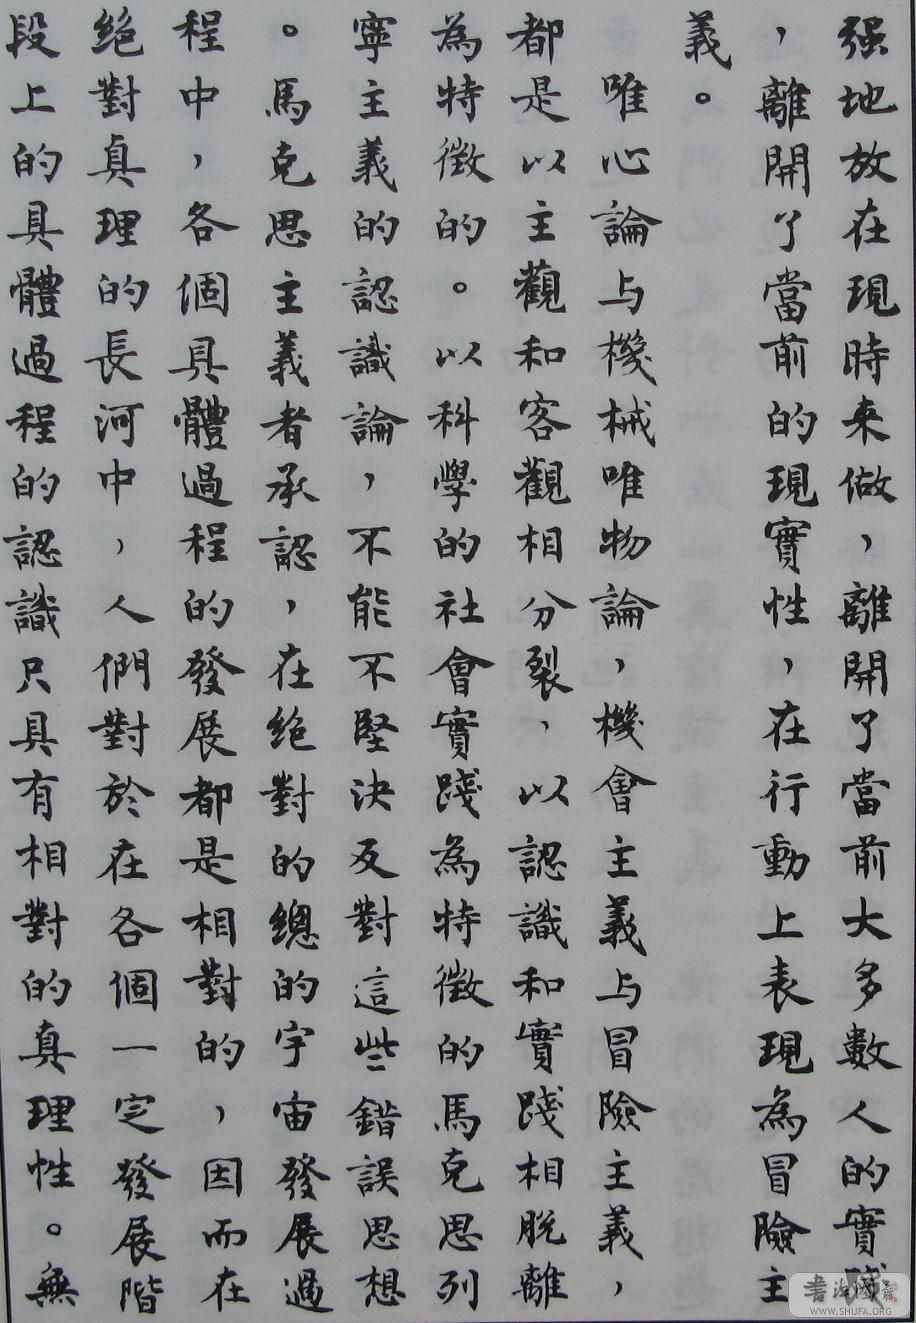 强地放在現時来做，離開了當前大多數人的實踐
，離開了當前的現實性，在行動上表現為冒險主
義。
唯心論与機械唯物論，機會主義与冒險主義，
都是以主觀和客觀相分裂，以認識和實踐相脱離
為特徵的。以科學的社會實踐為特徵的馬克思列
寧主義的認識論，不能不堅決反對這些錯誤思想
。馬克思主義者承認，在絕對的總的宇宙發展過
程中，各個具體過程的發展都是相對的，因而在
絕對真理的長河中，人們對於在各個一定發展階
段上的具體過程的認識只具有相對的真理性。無
書法國
WWW.SHUFA.ORG